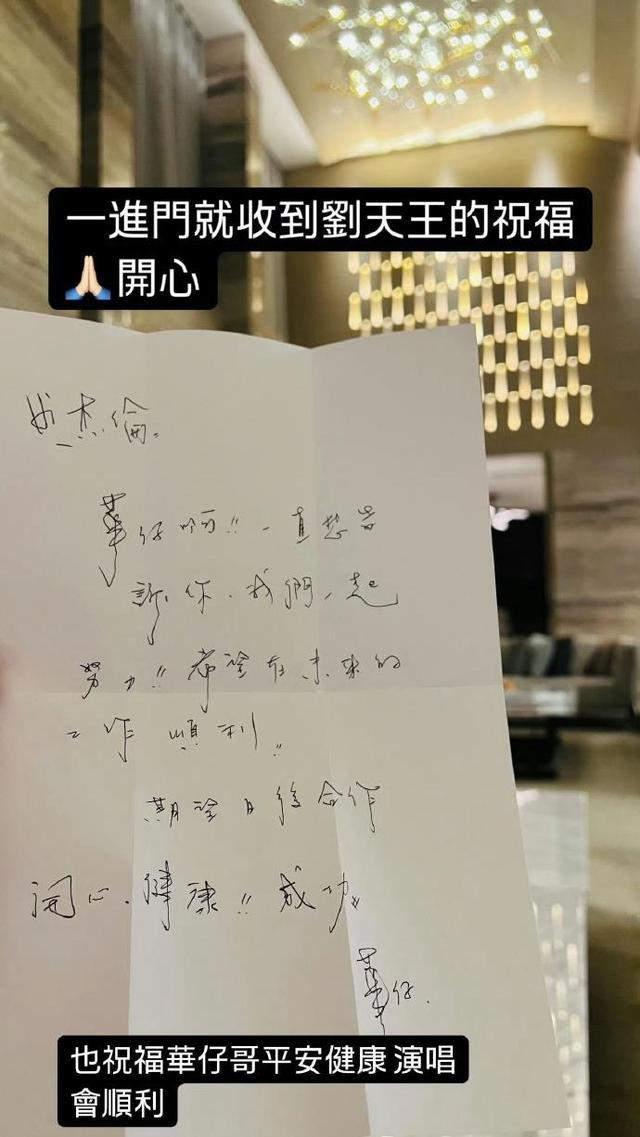 一進門就收到劉天王的祝福
🙏🏻開心
杰倫:
華仔啊!!一直想告
訴你.我們一起
努力!!希望在未來的
工作順利!!
期望日後合作
開心.健康!!成功!!
華仔.
也祝福華仔哥平安健康 演唱
會順利